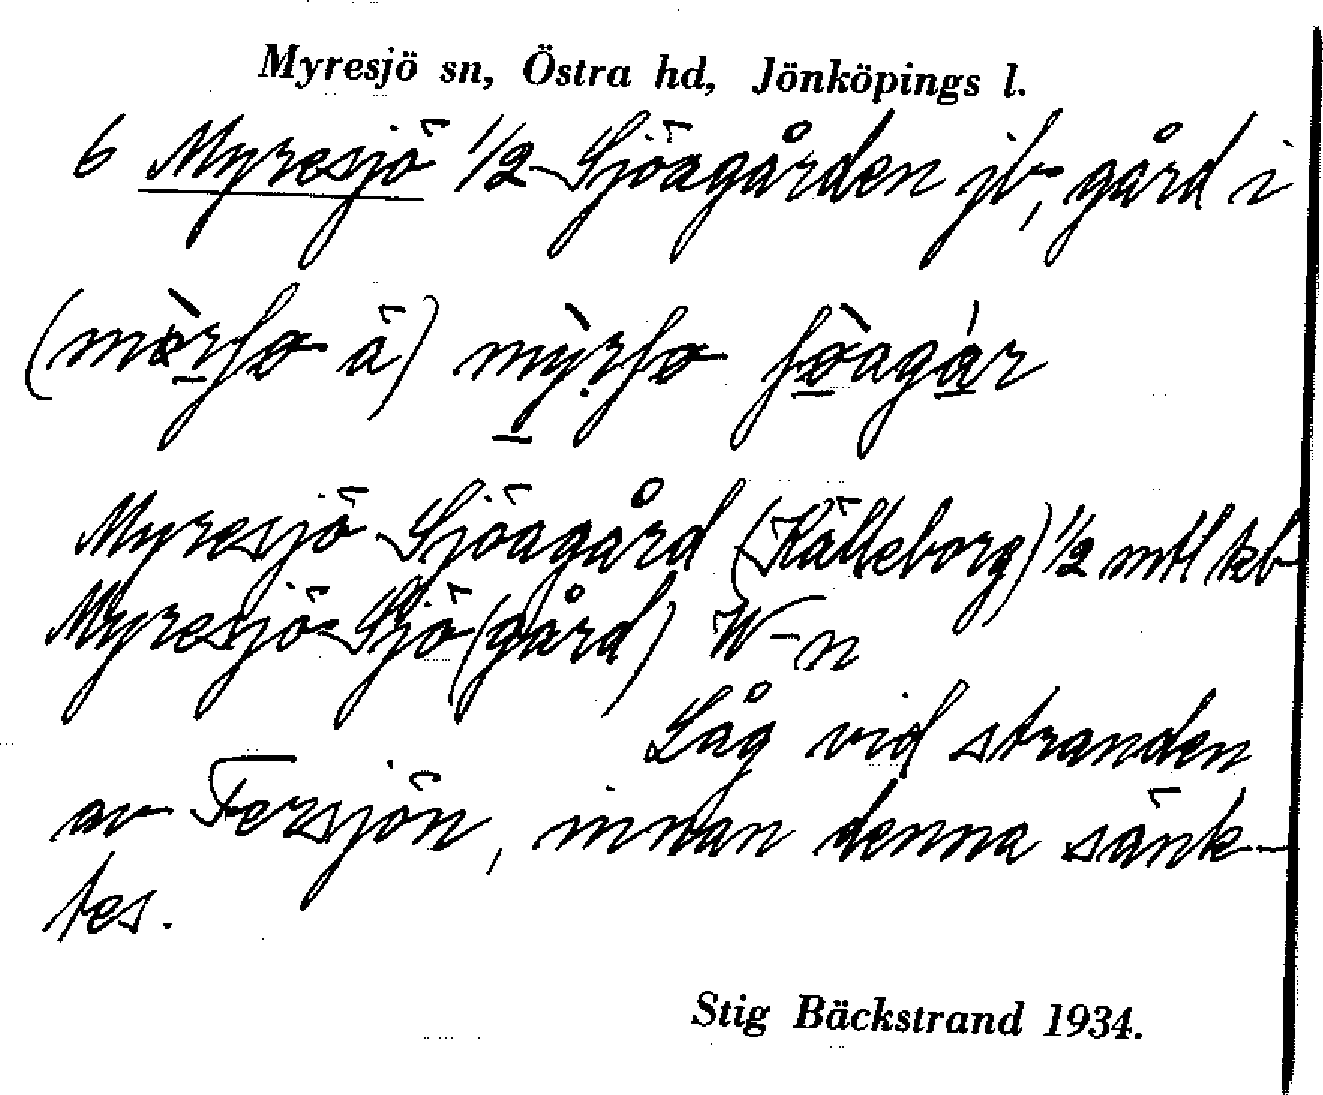 Myresjö sn, Östra hd, Jönköpings l.
6 Myresjö 1/2 Sjöagården jb, gård i
Myresjö Sjöagård (Källeborg) 1/2 mtl tkb
Myresjö-Sjö(gård) W-n
Låg vid stranden
av Fersjön, innan denna sänk-
tes.
Stig Bäckstrand 1934.